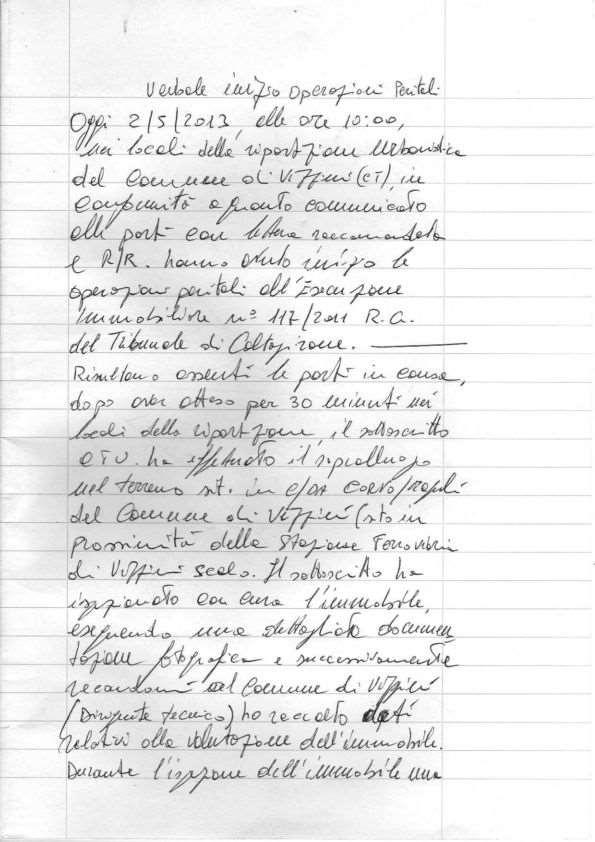 Verbale inizio Operazioni Peritali
Oggi 2/5/2013, alle ore 10:00,
nei locali della ripartizione Urbanistica
del Comune di Vizzini (CT), in
conformità a quanto comunicato
alle parti con lettera raccomandata
e R/R. hanno avuto inizio le
operazioni peritali all'Esecuzione
Immobiliare n° 117/2011 R.G.
del Tribunale di Caltagirone.
Risultano assenti le parti in causa,
dopo aver atteso per 30 minuti nei
locali della ripartizione, il sottoscritto
CTU. ha effettuato il sopralluogo
nel terreno sit. in C/DA
del Comune di Vizzini (sito in
prossimità della Stazione Ferroviaria
di Vizzini scalo. Il sottoscritto ha
ispezionato con cura l'immobile,
eseguendo una dettagliata documen
tazione fotografica e successivamente
recandomi al Comune di Vizzini
(Dirigente tecnico) ho raccolto dati
relativi alla valutazione dell'immobile.
Durante l'ispezione dell'immobile una